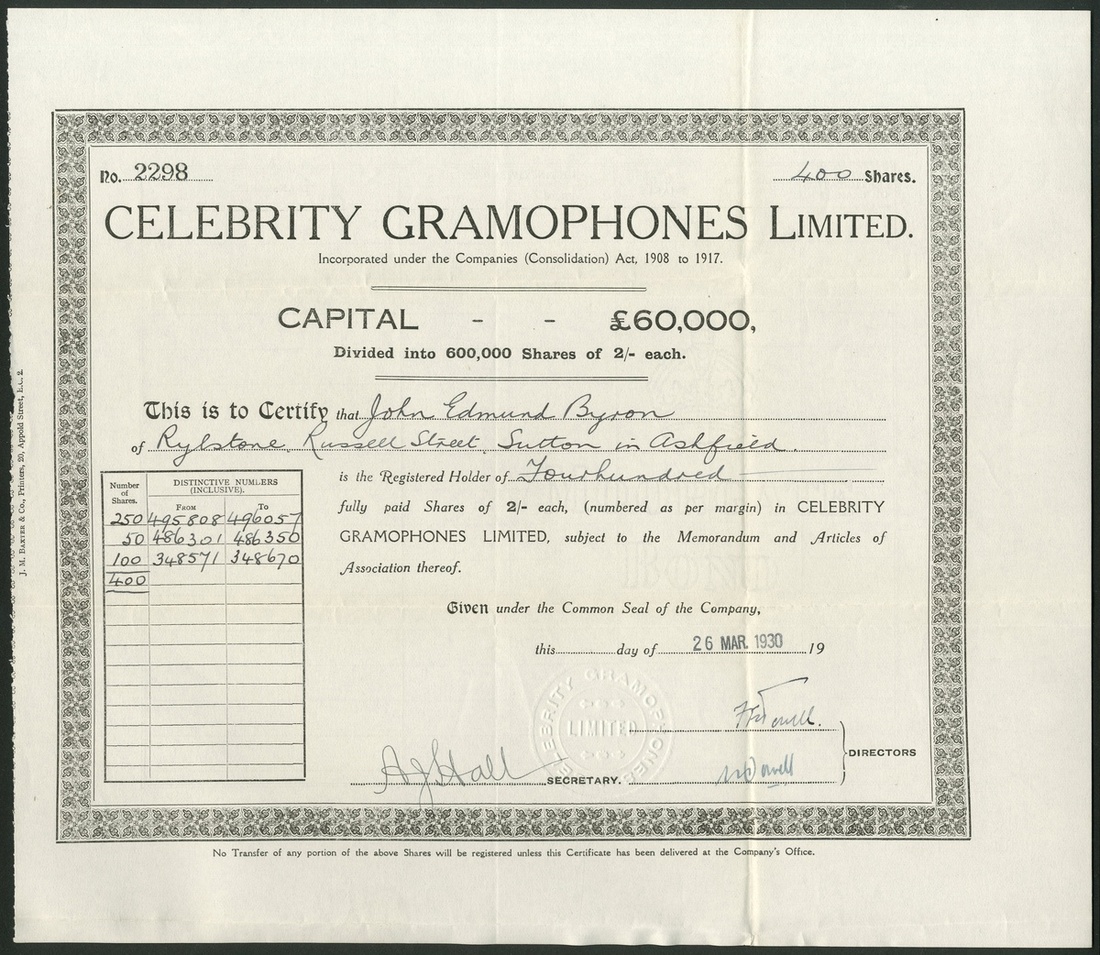 No. 2298
400 Shares.
CELEBRITY GRAMOPHONES LIMITED.
Incorporated under the Companies (Consolidation) Act, 1908 to 1917.
CAPITAL - - £60,000,
Divided into 600,000 Shares of 2/- each.
This is to Certify that John Edmund Byron
of Rylstone, Russell Street, Sutton in Ashfield.
is the Registered Holder of Fourhundred
fully paid Shares of 2/- each, (numbered as per margin) in CELEBRITY
GRAMOPHONES LIMITED, subject to the Memorandum and Articles of
Association thereof.
Number of Shares. DISTINCTIVE NUMBERS (INCLUSIVE).
FROM To
250 495808 496057
50 486301 486350
100 348571 348670
400
Given under the Common Seal of the Company,
this day of 26 MAR. 1930 19
CELEBRITY GRAMOPHONES
LIMITED
A J Hall SECRETARY.
DIRECTORS
No Transfer of any portion of the above Shares will be registered unless this Certificate has been delivered at the Company's Office.
J. M. BAXTER & Co., Printers, 20, Appold Street, E.C. 2.